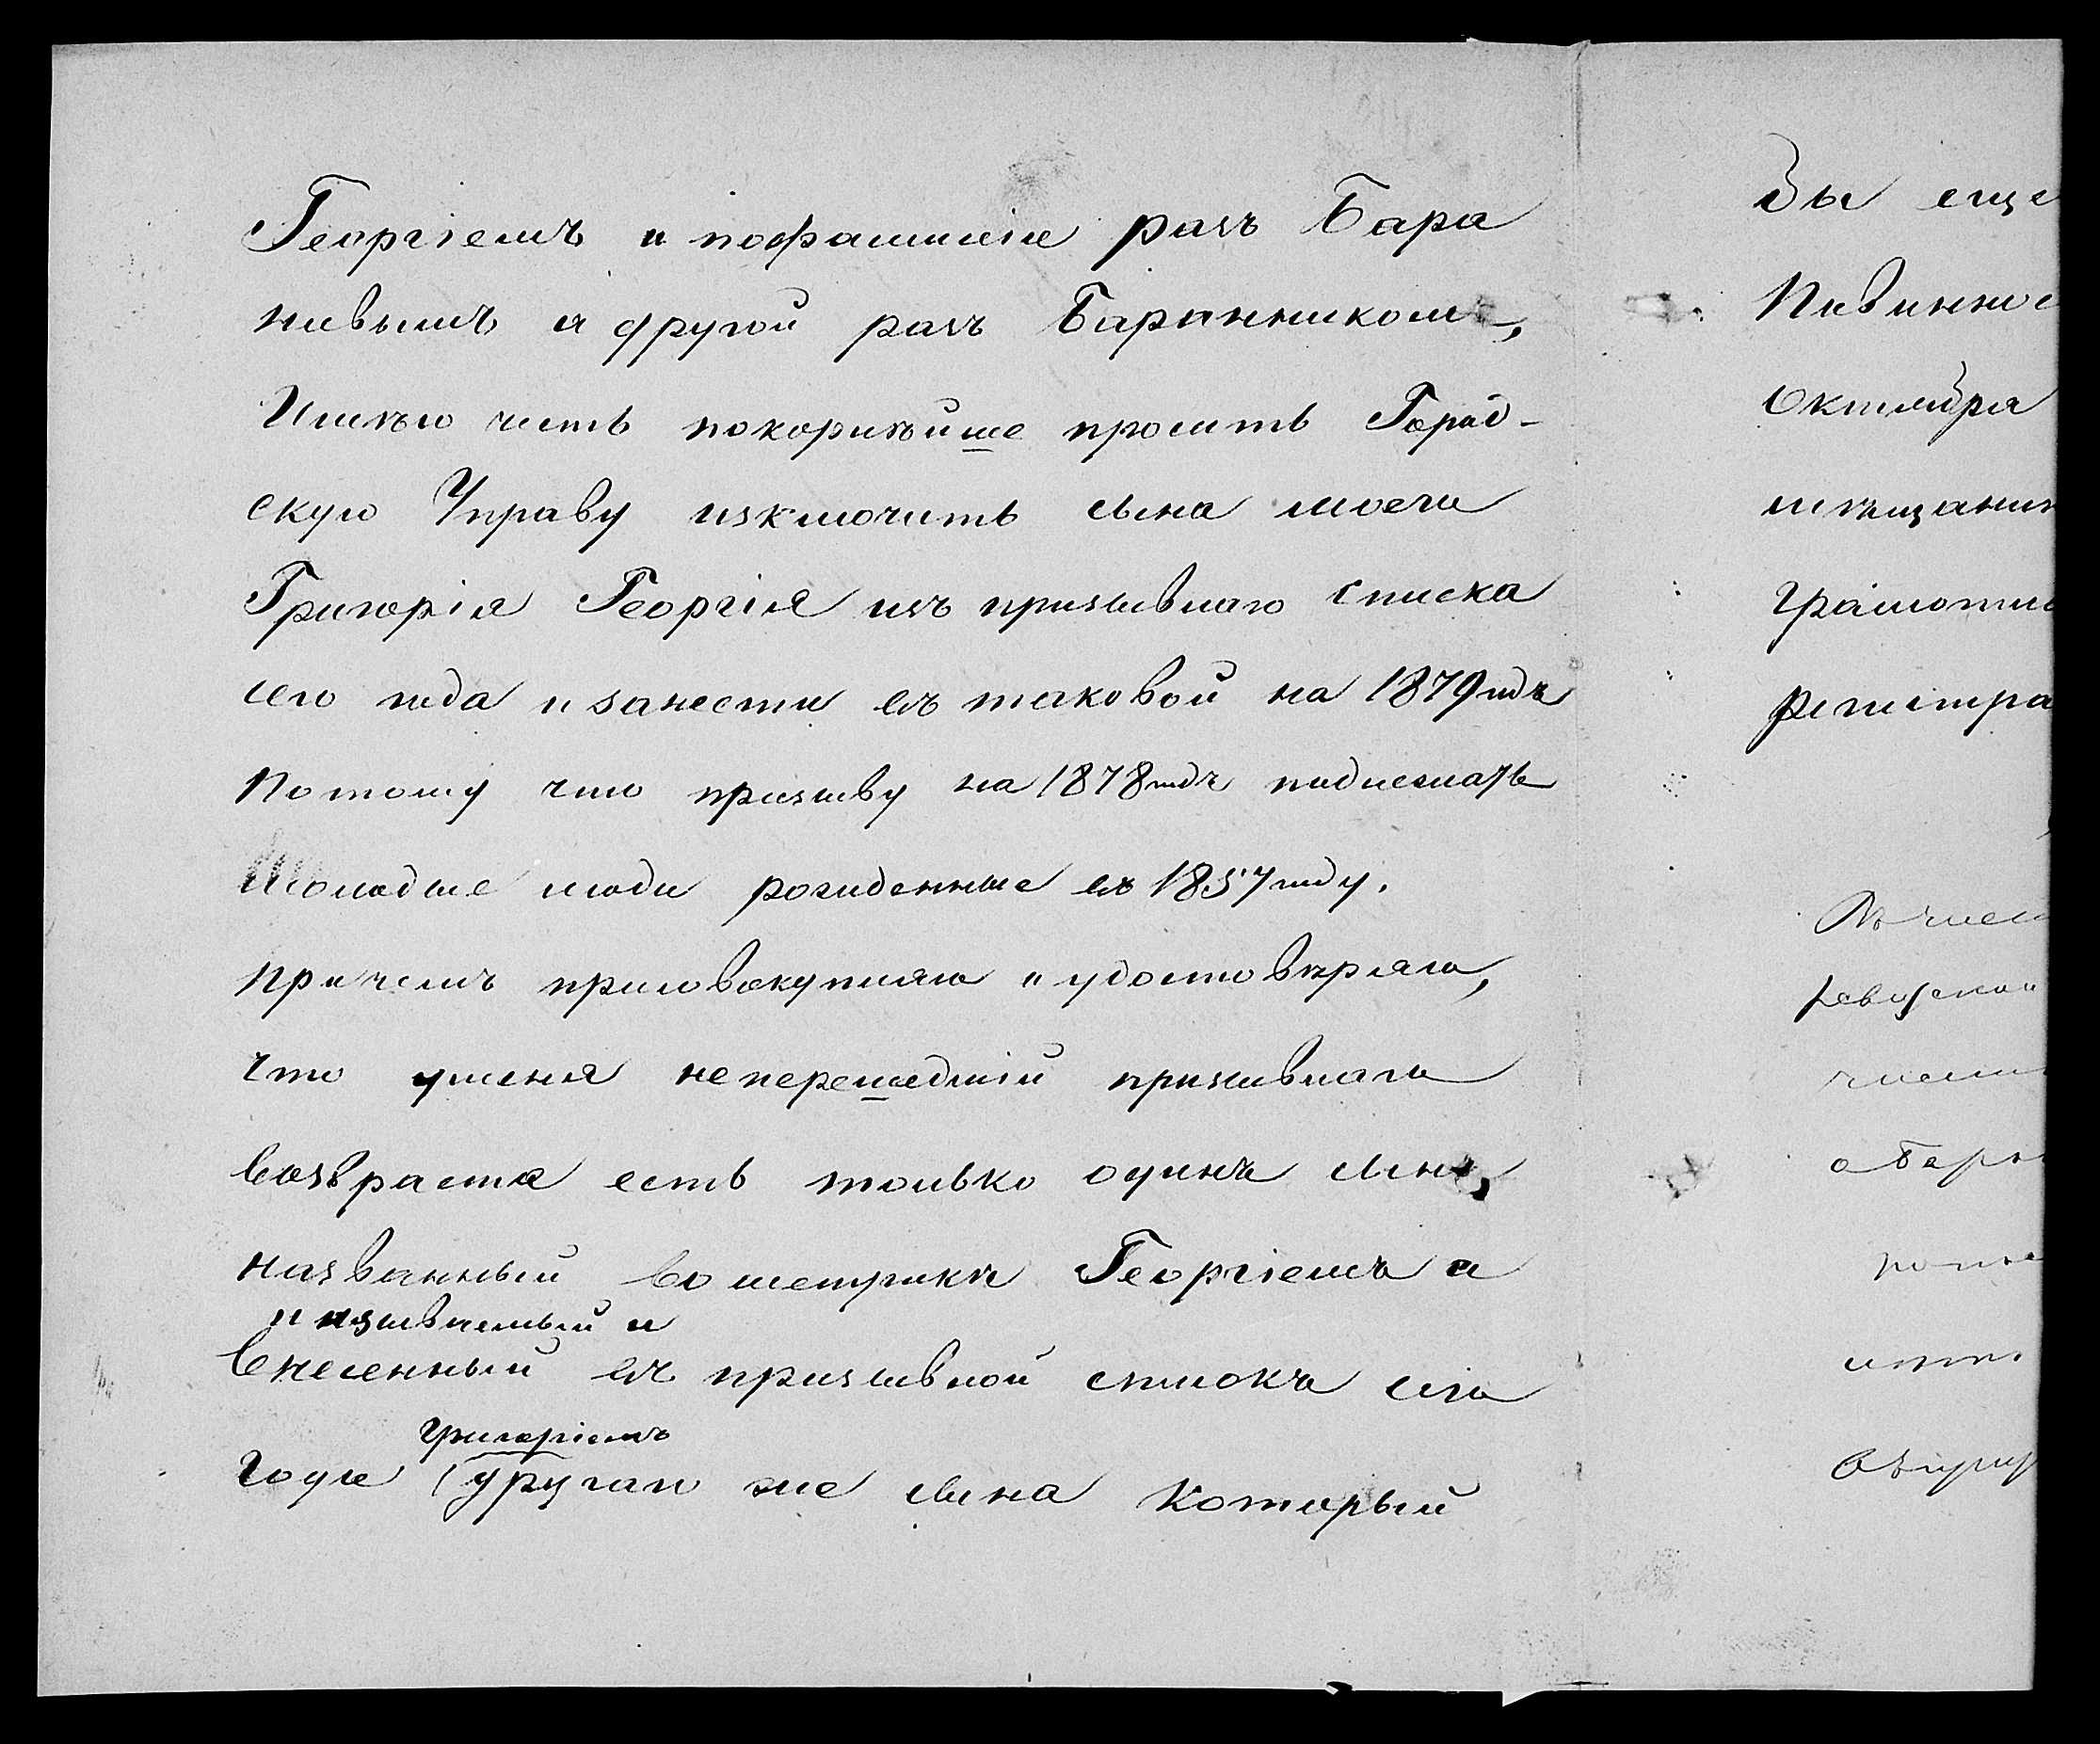 Георгіемъ и пофамиліе разъ Бара
новымъ а другой разъ Баранникомъ,
Имѣю честь покорнѣйше просить Город-
скую Управу изключить сына моего
Григорія Георгія изъ призывнаго списка
сего года и занести въ таковой на 1879 годъ
Потому что призыву на 1878 годъ подлежатъ
молодые люди рожденные въ 1857 году.
Причемъ присовокупляю и удостовѣряю,
что уменя неперешедшій призывнаго
возвраста есть только одинъ сынъ,
названный во метрикѣ Георгіемъ а
и называемый и
внесенный въ призывной списокъ сего
Григоріемъ
года другаго же сына который
бы еще
Повиннос
Октября
мѣщанин
грамотно
регистра